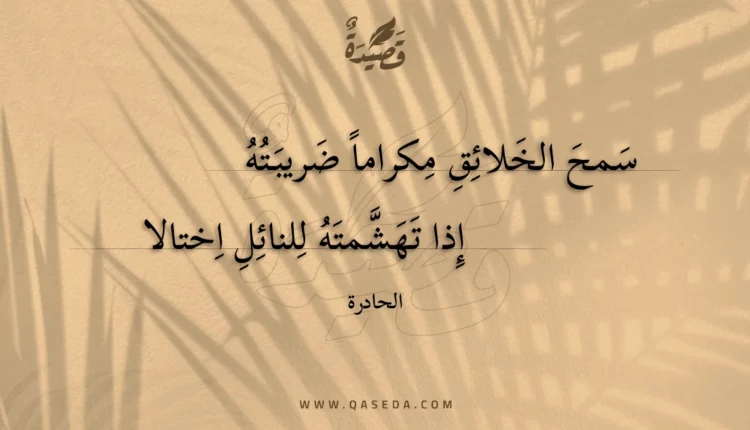 قَصِيدَةٌ
سَمحَ الخَلائِقِ مِكراماً ضَريبَتُهُ
إِذا تَهَشَّمتَهُ لِلنائِلِ اِختالا
الحادرة
WWW.QASEDA.COM